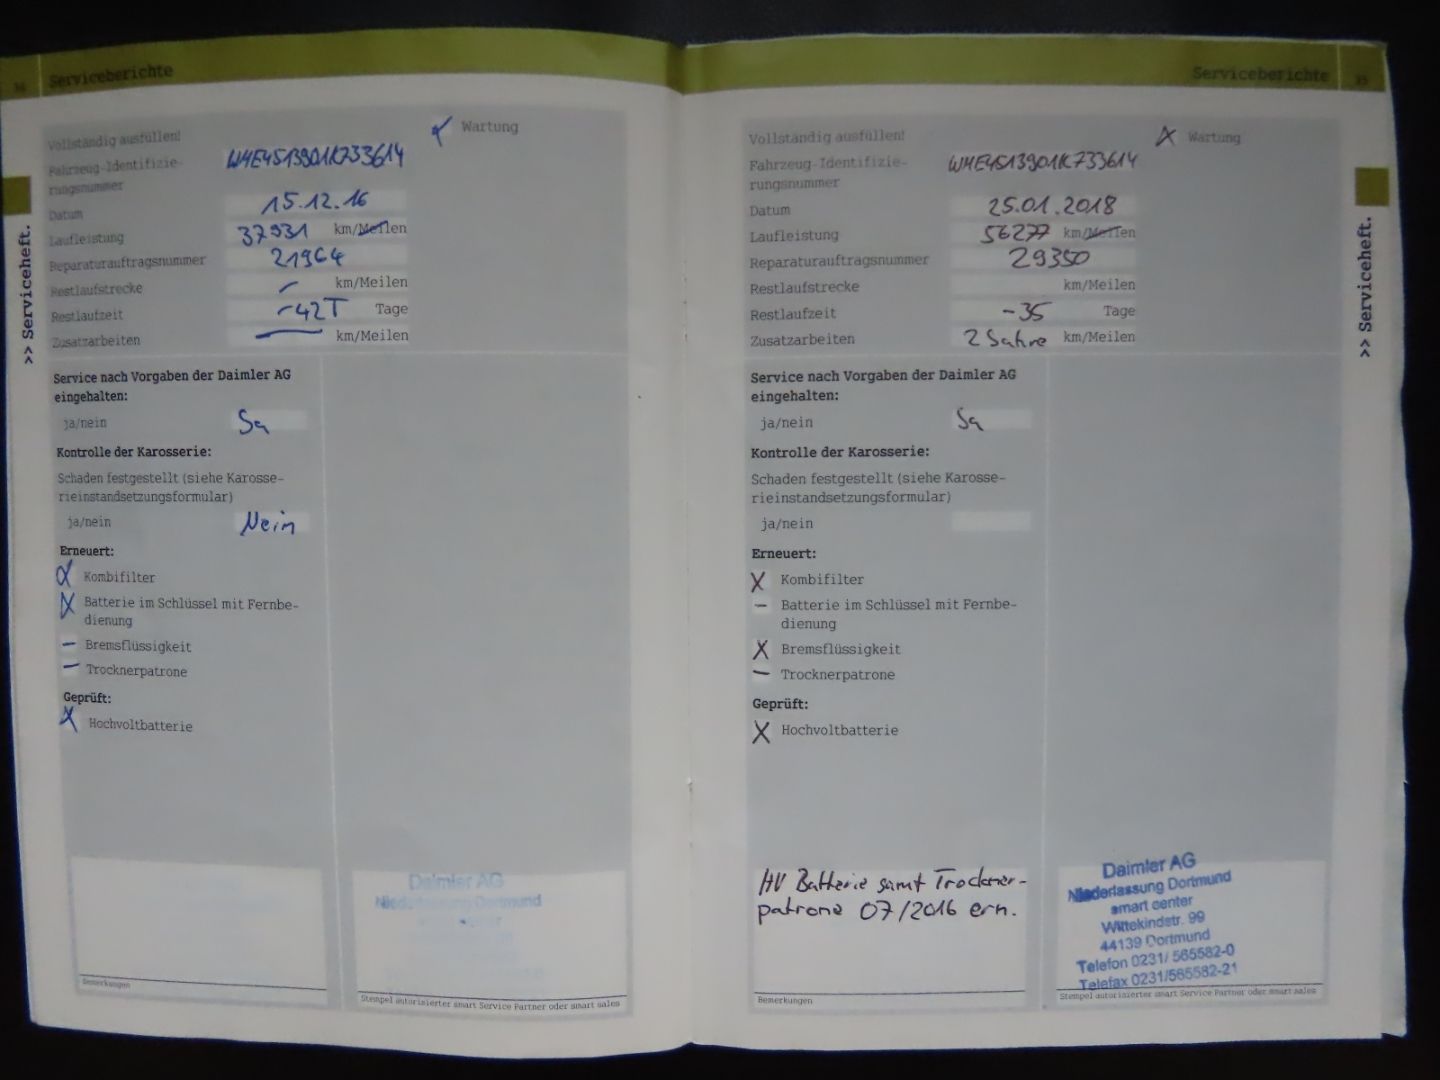 34 Serviceberichte
Vollständig ausfüllen!
Wartung
Fahrzeug-Identifizie-
rungsnummer
WME4513901K733614
Datum 15.12.16
Laufleistung 37931 km/Meilen
Reparaturauftragsnummer 21964
Restlaufstrecke – km/Meilen
Restlaufzeit -42T Tage
Zusatzarbeiten — km/Meilen
Service nach Vorgaben der Daimler AG
eingehalten:
ja/nein Ja
Kontrolle der Karosserie:
Schaden festgestellt (siehe Karosse-
rieinstandsetzungsformular)
ja/nein Nein
Erneuert:
X Kombifilter
X Batterie im Schlüssel mit Fernbe-
dienung
– Bremsflüssigkeit
– Trocknerpatrone
Geprüft:
X Hochvoltbatterie
Daimler AG
Niederlassung Dortmund
smart center
Bemerkungen
Stempel autorisierter smart Service Partner oder smart sales
>> Serviceheft.
Serviceberichte 35
Vollständig ausfüllen!
X Wartung
Fahrzeug-Identifizie-
rungsnummer
WME4513901K733614
Datum 25.01.2018
Laufleistung 56277 km/Meilen
Reparaturauftragsnummer 29350
Restlaufstrecke km/Meilen
Restlaufzeit -35 Tage
Zusatzarbeiten 2 Jahre km/Meilen
Service nach Vorgaben der Daimler AG
eingehalten:
ja/nein Ja
Kontrolle der Karosserie:
Schaden festgestellt (siehe Karosse-
rieinstandsetzungsformular)
ja/nein
Erneuert:
X Kombifilter
– Batterie im Schlüssel mit Fernbe-
dienung
X Bremsflüssigkeit
– Trocknerpatrone
Geprüft:
X Hochvoltbatterie
HV Batterie samt Trockner-
patrone 07/2016 ern.
Bemerkungen
Daimler AG
Niederlassung Dortmund
smart center
Wittekindstr. 99
44139 Dortmund
Telefon 0231/ 565582-0
Telefax 0231/565582-21
Stempel autorisierter smart Service Partner oder smart sales
>> Serviceheft.